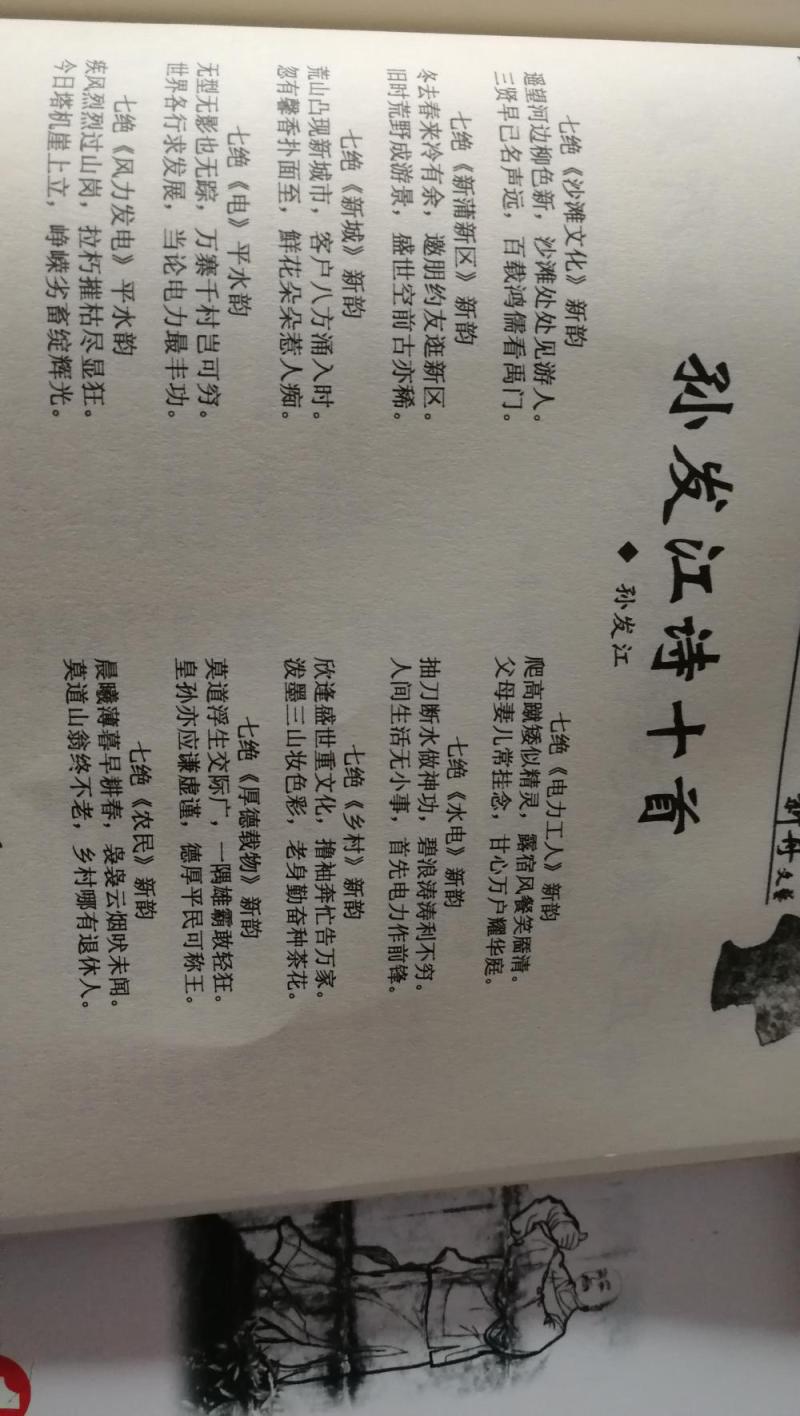 新村文艺
孙发江诗十首
◆ 孙发江
七绝《沙滩文化》新韵
遥望河边柳色新，沙滩处处见游人。
三贤早已名声远，百载鸿儒看禹门。
七绝《新蒲新区》新韵
冬去春来冷有余，邀朋约友逛新区。
旧时荒野成游景，盛世空前古亦稀。
七绝《新城》新韵
荒山凸现新城市，客户八方涌入时。
忽有馨香扑面至，鲜花朵朵惹人痴。
七绝《电》平水韵
无型无影也无踪，万寨千村岂可穷。
世界各行求发展，当论电力最丰功。
七绝《风力发电》平水韵
疾风烈烈过山岗，拉朽摧枯尽显狂。
今日塔机崖上立，峥嵘劣畜绽辉光。
七绝《电力工人》新韵
爬高蹴矮似精灵，露宿风餐笑靥清。
父母妻儿常挂念，甘心万户耀华庭。
七绝《水电》新韵
抽刀断水做神功，碧浪涛涛利不穷。
人间生活无小事，首先电力作前锋。
七绝《乡村》新韵
欣逢盛世重文化，撸袖奔忙告万家。
泼墨三山妆色彩，老身勤奋种茶花。
七绝《厚德载物》新韵
莫道浮生交际广，一隅雄霸敢轻狂。
皇孙亦应谦虚谨，德厚平民可称王。
七绝《农民》新韵
晨曦薄暮早耕春，袅袅云烟吠未闻。
莫道山翁终不老，乡村哪有退休人。